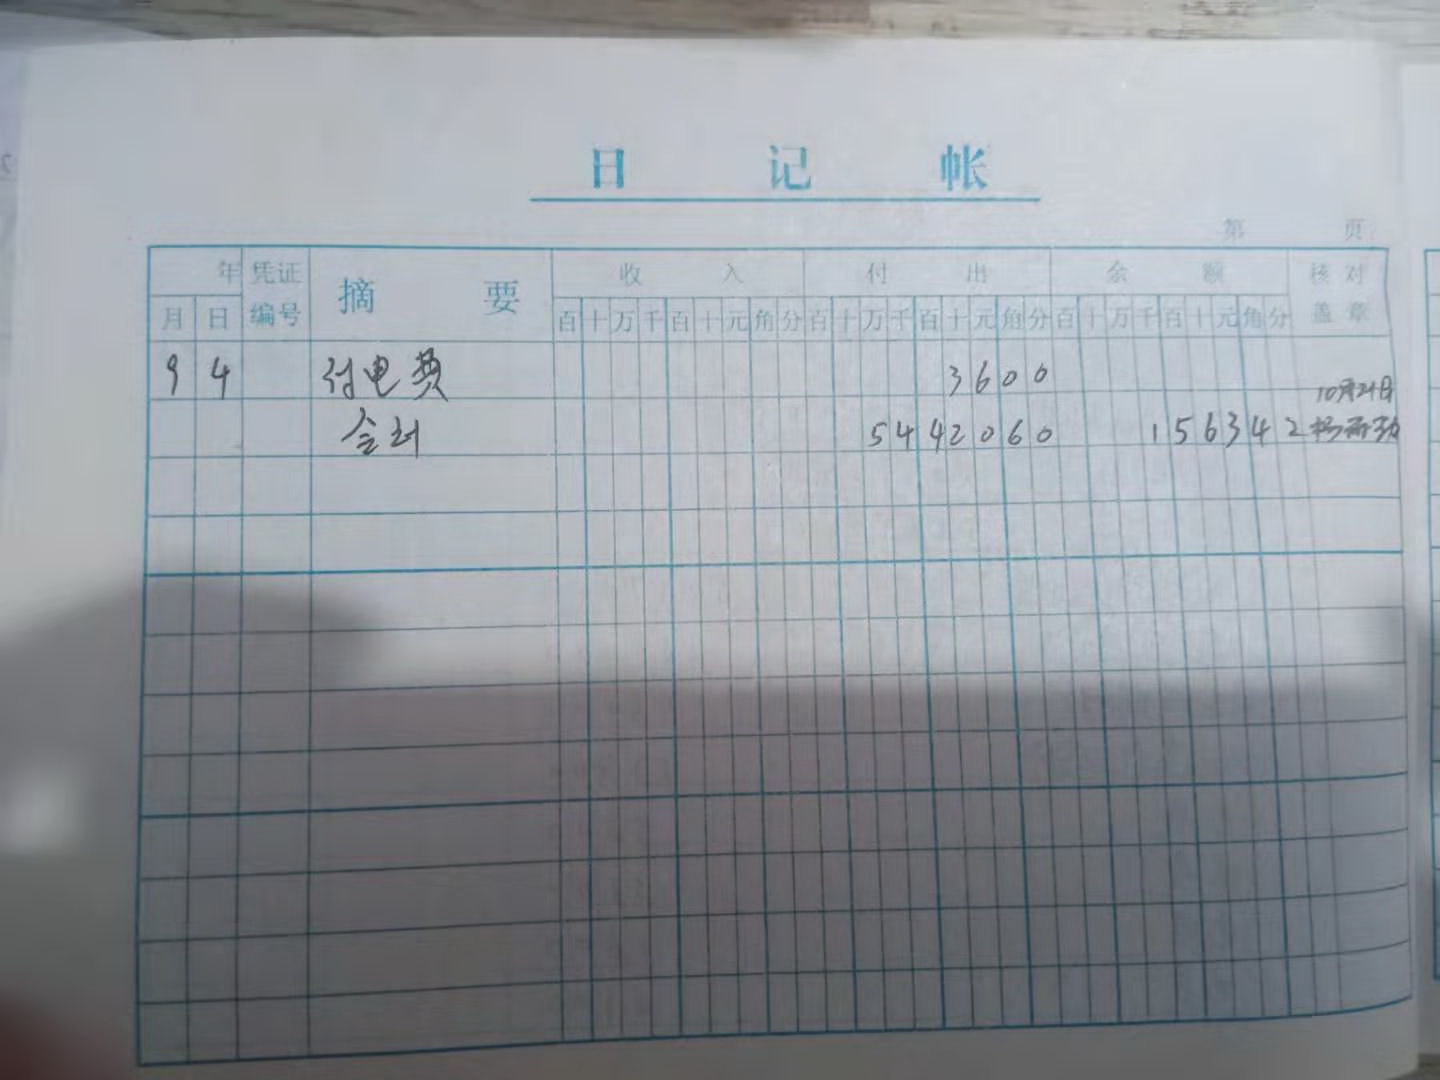 日 记 帐
第 页
年 凭证 摘 要 收 入 付 出 余 额 核 对
月 日 编号 百 十 万 千 百 十 元 角 分 百 十 万 千 百 十 元 角 分 百 十 万 千 百 十 元 角 分 盖 章
9 4 付电费 3600
10月24日
合计 5442060 156342